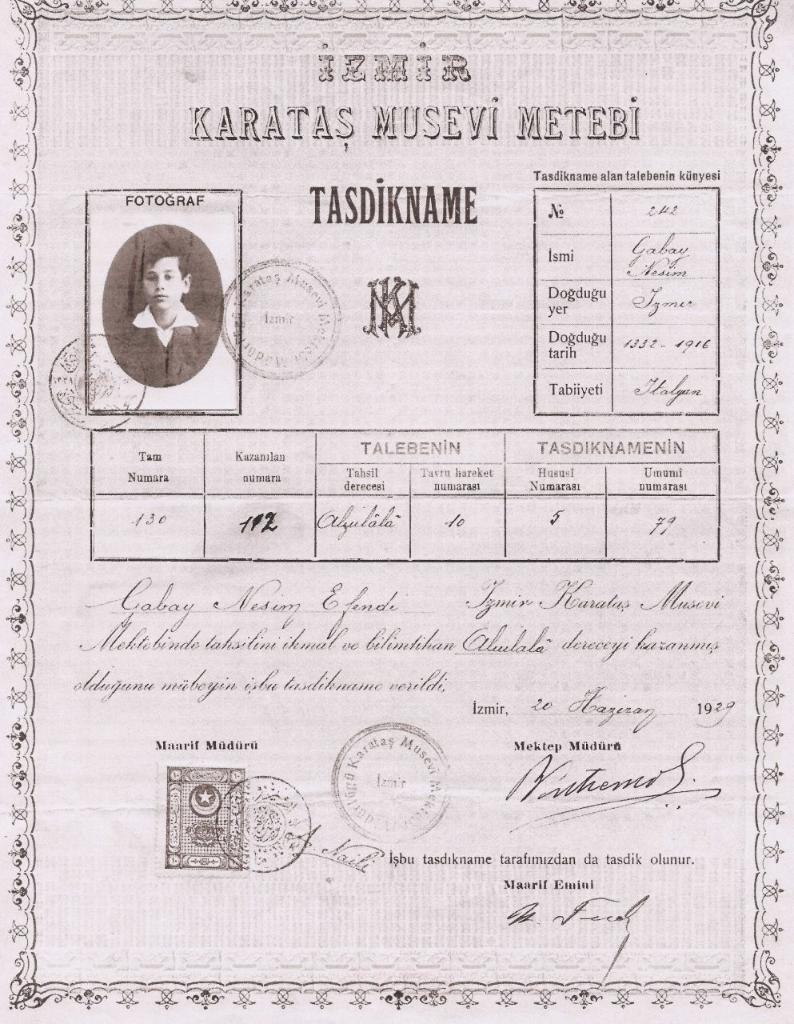 İZMİR
KARATAŞ MUSEVİ METEBİ
TASDİKNAME
FOTOĞRAF
Karataş Musevi
İzmir
KM
Tasdikname alan talebenin künyesi
№ 242
İsmi Gabay Nesim
Doğduğu yer İzmir
Doğduğu tarih 1332 - 1916
Tabiiyeti İtalyan
TALEBENİN TASDIKNAMENİN
Tam Numara Kazanılan numara Tahsil derecesi Tavru hareket numarası Hususî Numarası Umumî numarası
130 112 Alyülâlâ 10 5 79
Gabay Nesim Efendi İzmir Karataş Musevi
Mektebinde tahsilini ikmal ve bilimtihan Alyülalâ dereceyi kazanmış
olduğunu mübeyin işbu tasdikname verildi.
İzmir, 20 Haziran 1929
Maarif Müdürü
Mektep Müdürü
Karataş Musevi
İzmir
Naili
İşbu tasdıkname tarafımızdan da tasdik olunur.
Maarif Emini